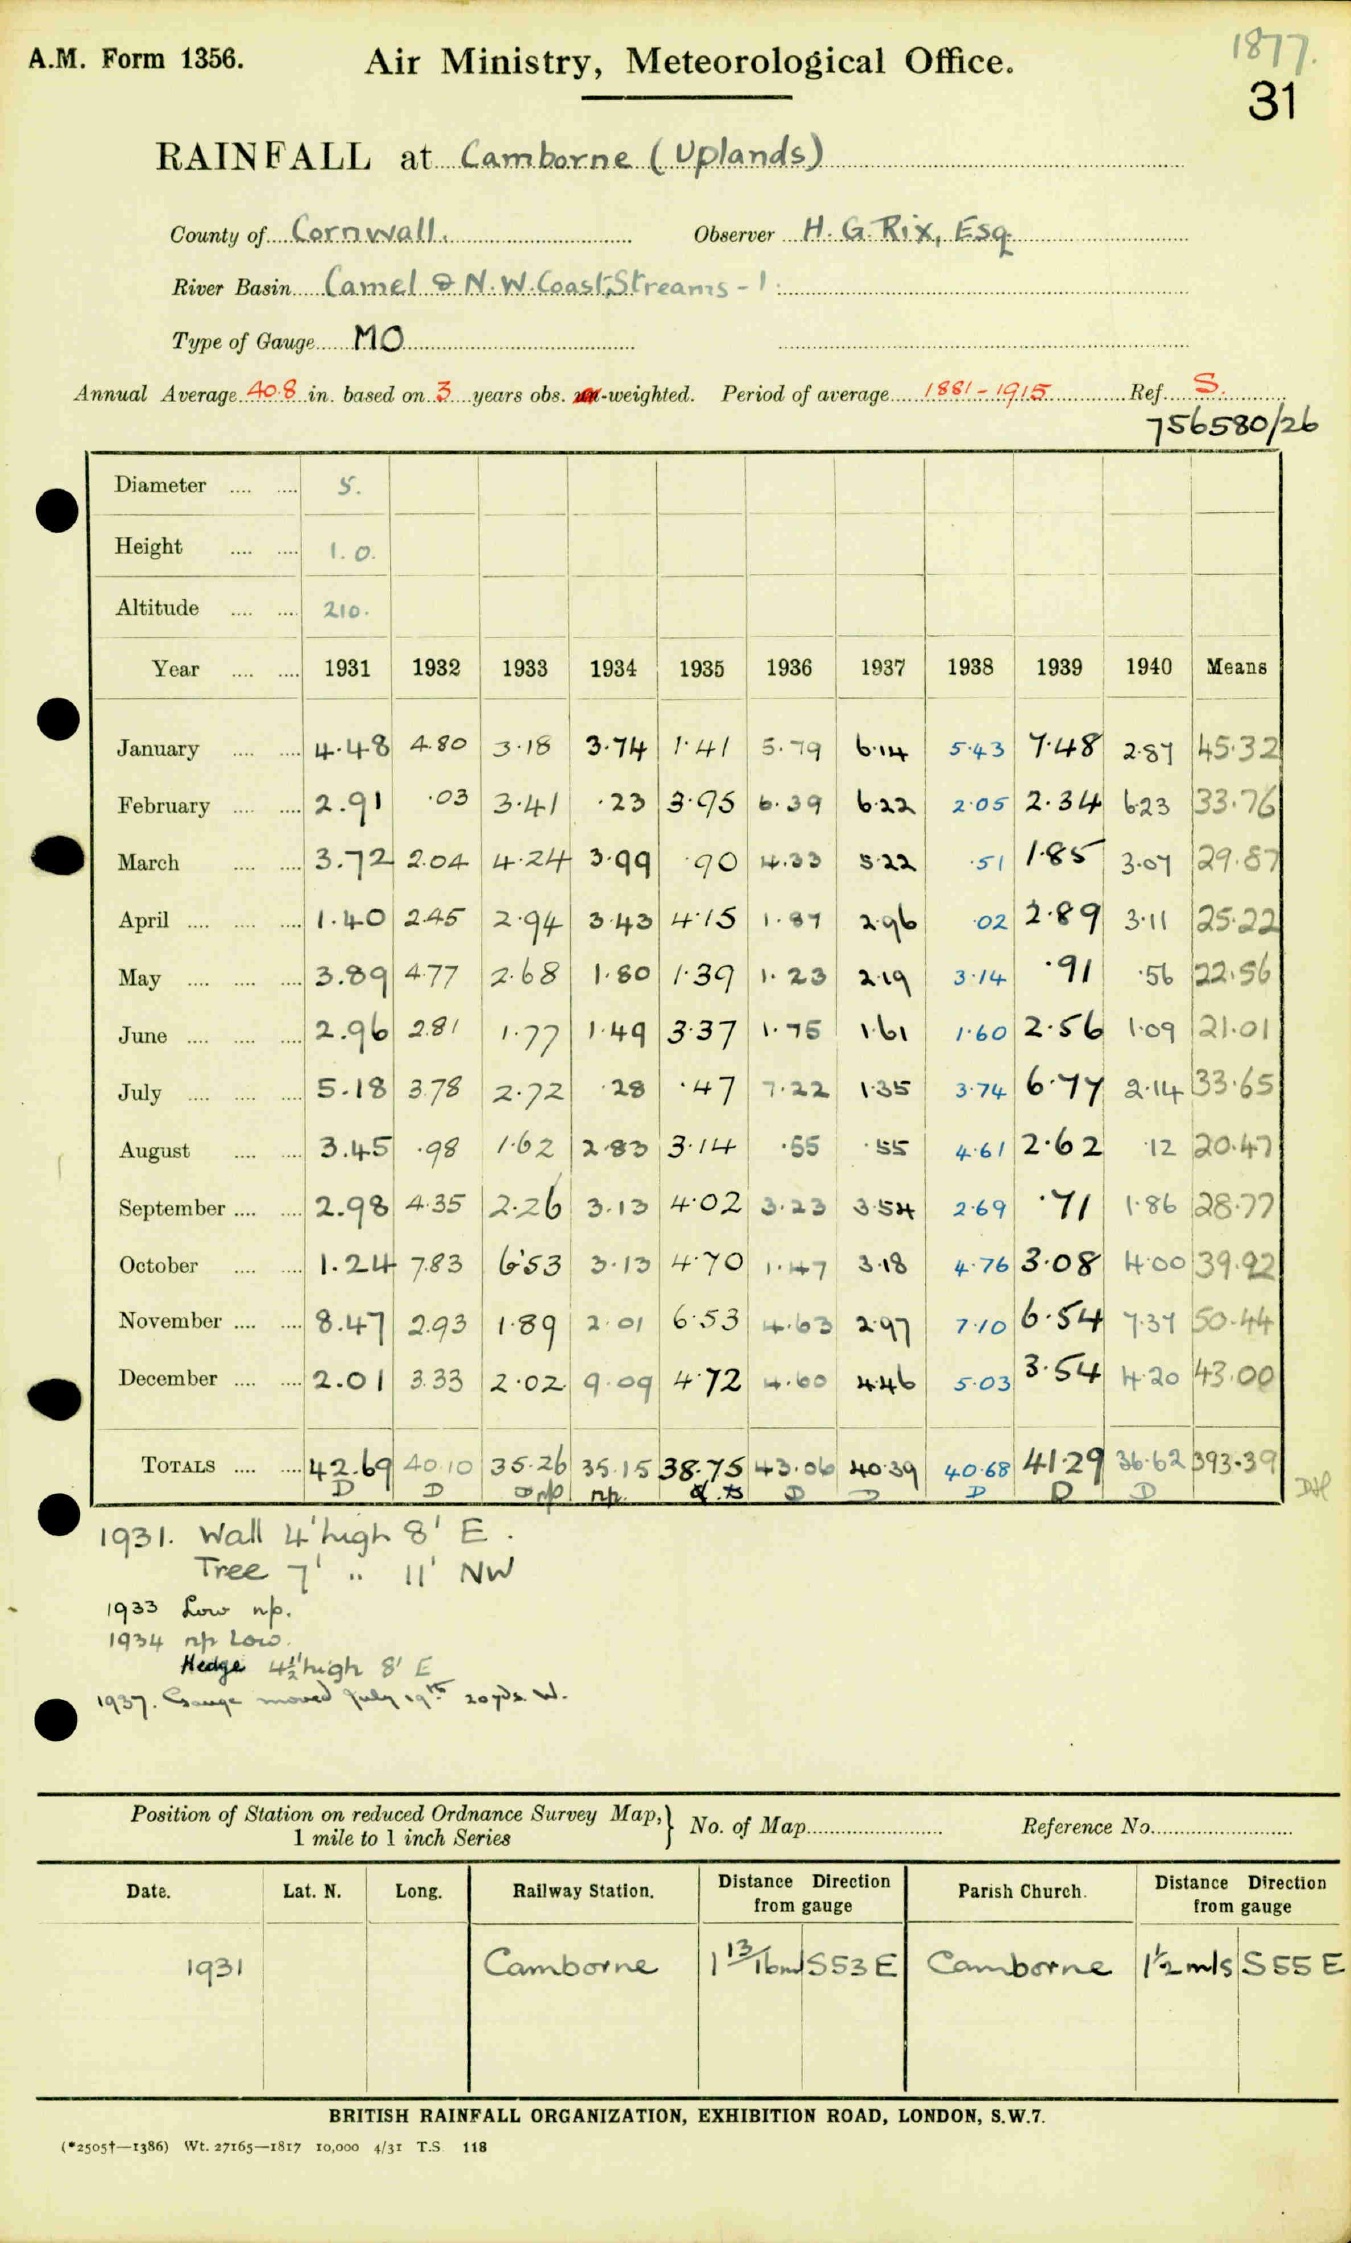 1877.
A.M. Form 1356. Air Ministry, Meteorological Office.
31
RAINFALL at Camborne (Uplands)
County of Cornwall. Observer H. G. Rix, Esq
River Basin Camel & N.W. Coast Streams - 1
Type of Gauge MO
Annual Average 40.8 in. based on 3 years obs. -weighted. Period of average 1881-1915 Ref. S.
756580/26
Diameter .... .... 5.
Height .... .... 1.0.
Altitude .... .... 210.
Year .... .... 1931 1932 1933 1934 1935 1936 1937 1938 1939 1940 Means
January .... .... 4.48 4.80 3.18 3.74 1.41 5.79 6.14 5.43 7.48 2.87 45.32
February .... .... 2.91 .03 3.41 .23 3.95 6.39 6.22 2.05 2.34 6.23 33.76
March .... .... 3.72 2.04 4.24 3.99 .90 4.33 5.22 .51 1.85 3.07 29.87
April .... .... .... 1.40 2.45 2.94 3.43 4.15 1.87 2.96 .02 2.89 3.11 25.22
May .... .... .... 3.89 4.77 2.68 1.80 1.39 1.23 2.19 3.14 .91 .56 22.56
June .... .... .... 2.96 2.81 1.77 1.49 3.37 1.75 1.61 1.60 2.56 1.09 21.01
July .... .... .... 5.18 3.78 2.72 .28 .47 7.22 1.35 3.74 6.77 2.14 33.65
August .... .... 3.45 .98 1.62 2.83 3.14 .55 .55 4.61 2.62 .12 20.47
September .... .... 2.98 4.35 2.26 3.13 4.02 3.23 3.54 2.69 .71 1.86 28.77
October .... .... 1.24 7.83 6.53 3.13 4.70 1.47 3.18 4.76 3.08 4.00 39.92
November .... .... 8.47 2.93 1.89 2.01 6.53 4.63 2.97 7.10 6.54 7.37 50.44
December .... .... 2.01 3.33 2.02 9.09 4.72 4.60 4.46 5.03 3.54 4.20 43.00
TOTALS .... .... 42.69 40.10 35.26 35.15 38.75 43.06 40.39 40.68 41.29 36.62 393.39
D D np np. D D D D D
1931. Wall 4' high 8' E.
Tree 7' " 11' NW
1933 Low np.
1934 np Low.
Hedge 4½' high 8' E
1937. Gauge moved July 19th 20 yds. W.
Position of Station on reduced Ordnance Survey Map, 1 mile to 1 inch Series } No. of Map Reference No.
Date. Lat. N. Long. Railway Station. Distance Direction from gauge Parish Church. Distance Direction from gauge
1931 Camborne 1 13/16 m S53E Camborne 1½ mls S55E
BRITISH RAINFALL ORGANIZATION, EXHIBITION ROAD, LONDON, S.W.7.
(*2505†—1386) Wt. 27165—1817 10,000 4/31 T.S. 118